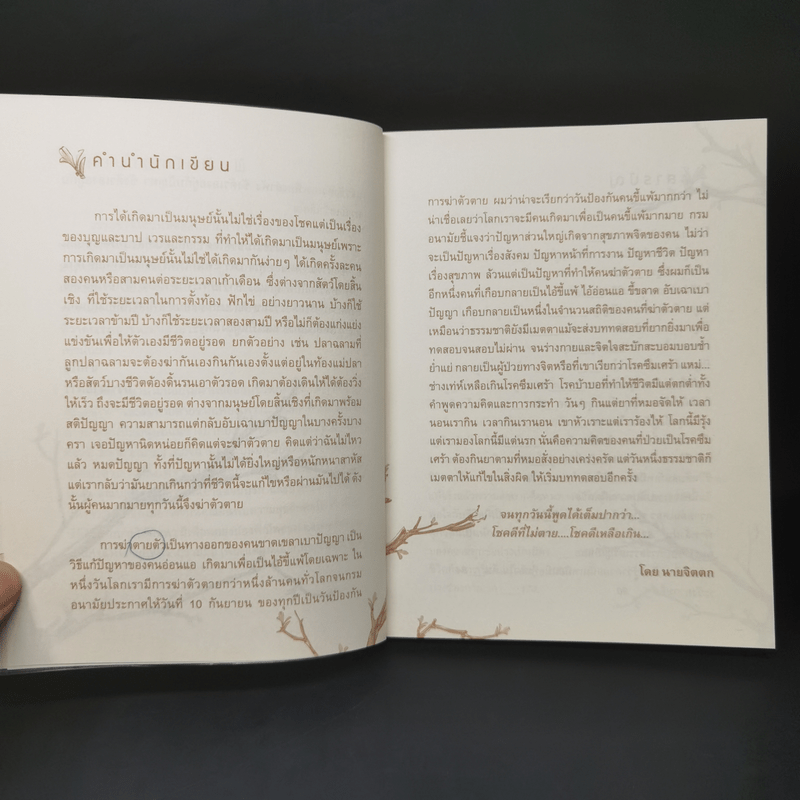 คำนำนักเขียน
การได้เกิดมาเป็นมนุษย์นั้นไม่ใช่เรื่องของโชคแต่เป็นเรื่อง
ของบุญและบาป เวรและกรรม ที่ทำให้ได้เกิดมาเป็นมนุษย์เพราะ
การเกิดมาเป็นมนุษย์นั้นไม่ใช่ได้เกิดมากันง่ายๆ ได้เกิดครั้งละคน
สองคนหรือสามคนต่อระยะเวลาเก้าเดือน ซึ่งต่างจากสัตว์โดยสิ้น
เชิง ที่ใช้ระยะเวลาในการตั้งท้อง ฟักไข่ อย่างยาวนาน บ้างก็ใช้
ระยะเวลาข้ามปี บ้างก็ใช้ระยะเวลาสองสามปี หรือไม่ก็ต้องแก่งแย่ง
แข่งขันเพื่อให้ตัวเองมีชีวิตอยู่รอด ยกตัวอย่าง เช่น ปลาฉลามที่
ลูกปลาฉลามจะต้องฆ่ากันเองกินกันเอง ตั้งแต่อยู่ในท้องแม่ปลา
หรือสัตว์บางชีวิตต้องดิ้นรนเอาตัวรอด เกิดมาต้องเดินให้ได้ต้องวิ่ง
ให้เร็ว ถึงจะมีชีวิตอยู่รอด ต่างจากมนุษย์โดยสิ้นเชิงที่เกิดมาพร้อม
สติปัญญา ความสามารถแต่กลับอับเฉาเบาปัญญาในบางครั้งบาง
ครา เจอปัญหานิดหน่อยก็คิดแต่จะฆ่าตัวตาย คิดแต่ว่าฉันไม่ไหว
แล้ว หมดปัญญา ทั้งที่ปัญหานั้นไม่ได้ยิ่งใหญ่หรือหนักหนาสาหัส
แต่เรากลับว่ามันยากเกินกว่าที่ชีวิตนี้จะแก้ไขหรือผ่านมันไปได้ ดัง
นั้นผู้คนมากมายทุกวันนี้จึงฆ่าตัวตาย
การฆ่าตายตัวเป็นทางออกของคนขาดเขลาเบาปัญญา เป็น
วิธีแก้ปัญหาของคนอ่อนแอ เกิดมาเพื่อเป็นไอ้ขี้แพ้โดยเฉพาะ ใน
หนึ่งวันโลกเรามีการฆ่าตัวตายกว่าหนึ่งล้านคนทั่วโลกจนกรม
อนามัยประกาศให้วันที่ 10 กันยายน ของทุกปีเป็นวันป้องกัน
การฆ่าตัวตาย ผมว่าน่าจะเรียกว่าวันป้องกันคนขี้แพ้มากกว่า ไม่
น่าเชื่อเลยว่าโลกเราจะมีคนเกิดมาเพื่อเป็นคนขี้แพ้มากมาย กรม
อนามัยชี้แจงว่าปัญหาส่วนใหญ่เกิดจากสุขภาพจิตของคน ไม่ว่า
จะเป็นปัญหาเรื่องสังคม ปัญหาหน้าที่การงาน ปัญหาชีวิต ปัญหา
เรื่องสุขภาพ ล้วนแต่เป็นปัญหาที่ทำให้คนฆ่าตัวตาย ซึ่งผมก็เป็น
อีกหนึ่งคนที่เกือบกลายเป็นไอ้ขี้แพ้ ไอ้อ่อนแอ ขี้ขลาด อับเฉาเบา
ปัญญา เกือบกลายเป็นหนึ่งในจำนวนสถิติของคนที่ฆ่าตัวตาย แต่
เหมือนว่าธรรมชาติยังมีเมตตาแม้จะส่งบททดสอบที่ยากยิ่งมาเพื่อ
ทดสอบจนสอบไม่ผ่าน จนร่างกายและจิตใจสะบักสะบอมบอบช้ำ
ย่ำแย่ กลายเป็นผู้ป่วยทางจิตหรือที่เขาเรียกว่าโรคซึมเศร้า แหม่...
ช่างเท่ห์เหลือเกินโรคซึมเศร้า โรคบ้าบอที่ทำให้ชีวิตมีแต่ตกต่ำทั้ง
คำพูดความคิดและการกระทำ วันๆ กินแต่ยาที่หมอจัดให้ เวลา
นอนเรากิน เวลากินเรานอน เขาหัวเราะแต่เราร้องไห้ โลกนี้มีรุ้ง
แต่เรามองโลกนี้มีแต่นรก นั่นคือความคิดของคนที่ป่วยเป็นโรคซึม
เศร้า ต้องกินยาตามที่หมอสั่งอย่างเคร่งครัด แต่วันหนึ่งธรรมชาติก็
เมตตาให้แก้ไขในสิ่งผิด ให้เริ่มบททดสอบอีกครั้ง
จนทุกวันนี้พูดได้เต็มปากว่า...
โชคดีที่ไม่ตาย....โชคดีเหลือเกิน...
โดย นายจิตตก